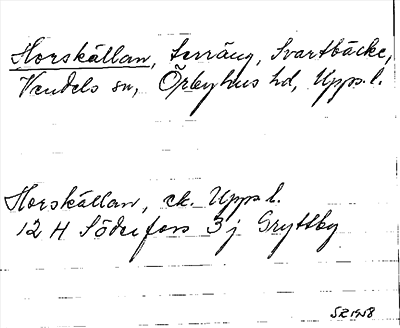 Horskällan, terräng, Svartbäcke,
Vendels sn, Örbyhus hd, Upps. l.
Horskällan, ek. Upps l.
12 H Söderfors 3 j Gryttby